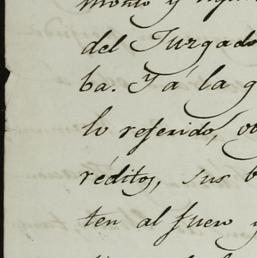 del Juzgado
ba. Y á la g
lo referido, o
réditos, sus b
ten al fuero y